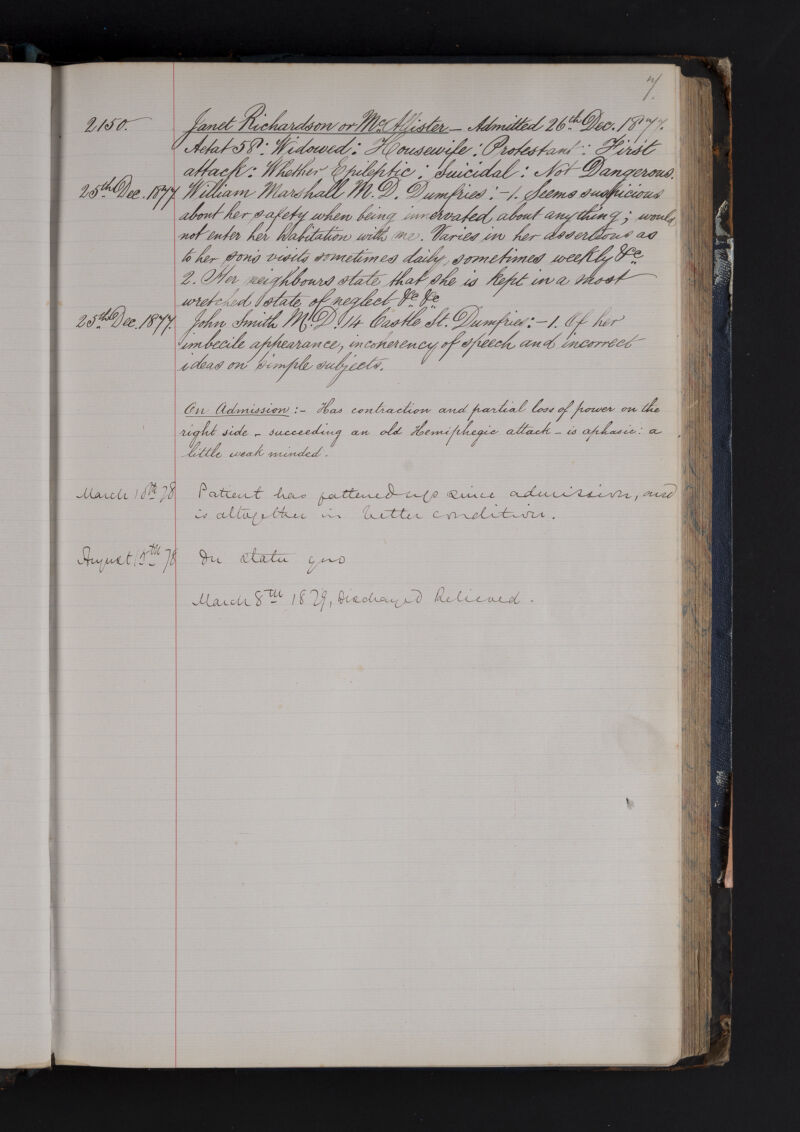 7.
2150. Janet Richardson or McAllister — Admitted 26th Dec. 1877.
Aetat 58: Widowed: Housewife: Protestant: First
attack: Whether Epileptic: Suicidal: Not Dangerous.
25th Dec. 1877 William Marshall M.D. Dumfries: – 1. Seems suspicious
about her safety when being about anything; would
not enter her habitation with me. Varies in her assertions as
to her sons visits sometimes daily, sometimes weekly &c
2. Her neighbours state that she is kept in a most
wretched state of neglect &c &c
25th Dec. 1877. John Smith M.D. 14 Castle St. Dumfries: – 1. Of her
imbecile appearance, incoherency of speech and incorrect
ideas on simple subjects.
On Admission :- Has contraction and partial loss of power on the
right side – succeeding an old Hemiphegic attack – is aphasic: a
little weak minded.
March 18th 78 Patient has fattened up since admission, and
is altogether in better condition.
August 15th 78 In statu quo
March 8th 1879, Discharged Relieved.